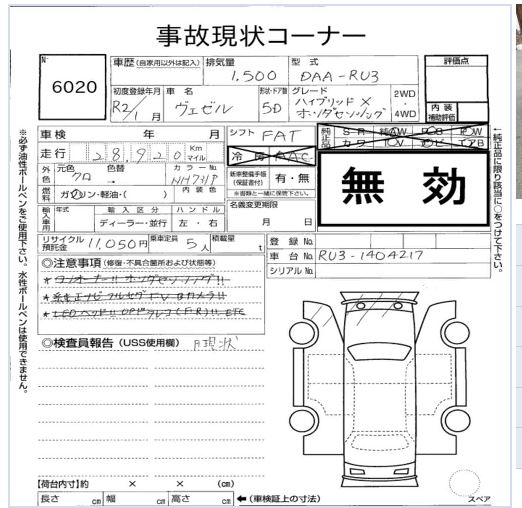 事故現状コーナー
No
6020
車歴 (自家用以外は記入)
排気量
1,500
型式
DAA-RU3
評価点
初度登録年月
R2/1月
車名
ヴェゼル
形状・ドア数
5D
グレード
ハイブリッドX
ホンダセンシング
2WD
・
4WD
内装
補助評価
車検 年 月
走行 28,920 Km マイル
シフト FAT
冷房 AAC
純正品
SR AW PS PW
カワ TV ナビ エアB
外色
元色 クロ
色替 →
カラーNo.
NH731P
燃料
ガソリン・軽油・( )
内装色
新車整備手帳
(保証書付)
有・無
※書類と一緒に保管下さい。
無効
輸入車用
年式
輸入区分
ディーラー・並行
ハンドル
左・右
名義変更期限
月 日
リサイクル預託金 11,050円
乗車定員 5人
積載量 t
登録No.
車台No. RU3-1404217
シリアルNo.
◎注意事項 (修復・不具合箇所および状態等)
*ワンオーナー!! ホンダセンシング!!
*純正ナビ フルセグTV Bカメラ!!
*LEDヘッド!! OPドラレコ(F・R)!! ETC
◎検査員報告 (USS使用欄) 現状
【荷台内寸】約 × × (cm)
長さ cm 幅 cm 高さ cm
←(車検証上の寸法)
スペア
※必ず油性ボールペンをご使用下さい。水性ボールペンは使用できません。
←純正品に限り該当に○をつけて下さい。